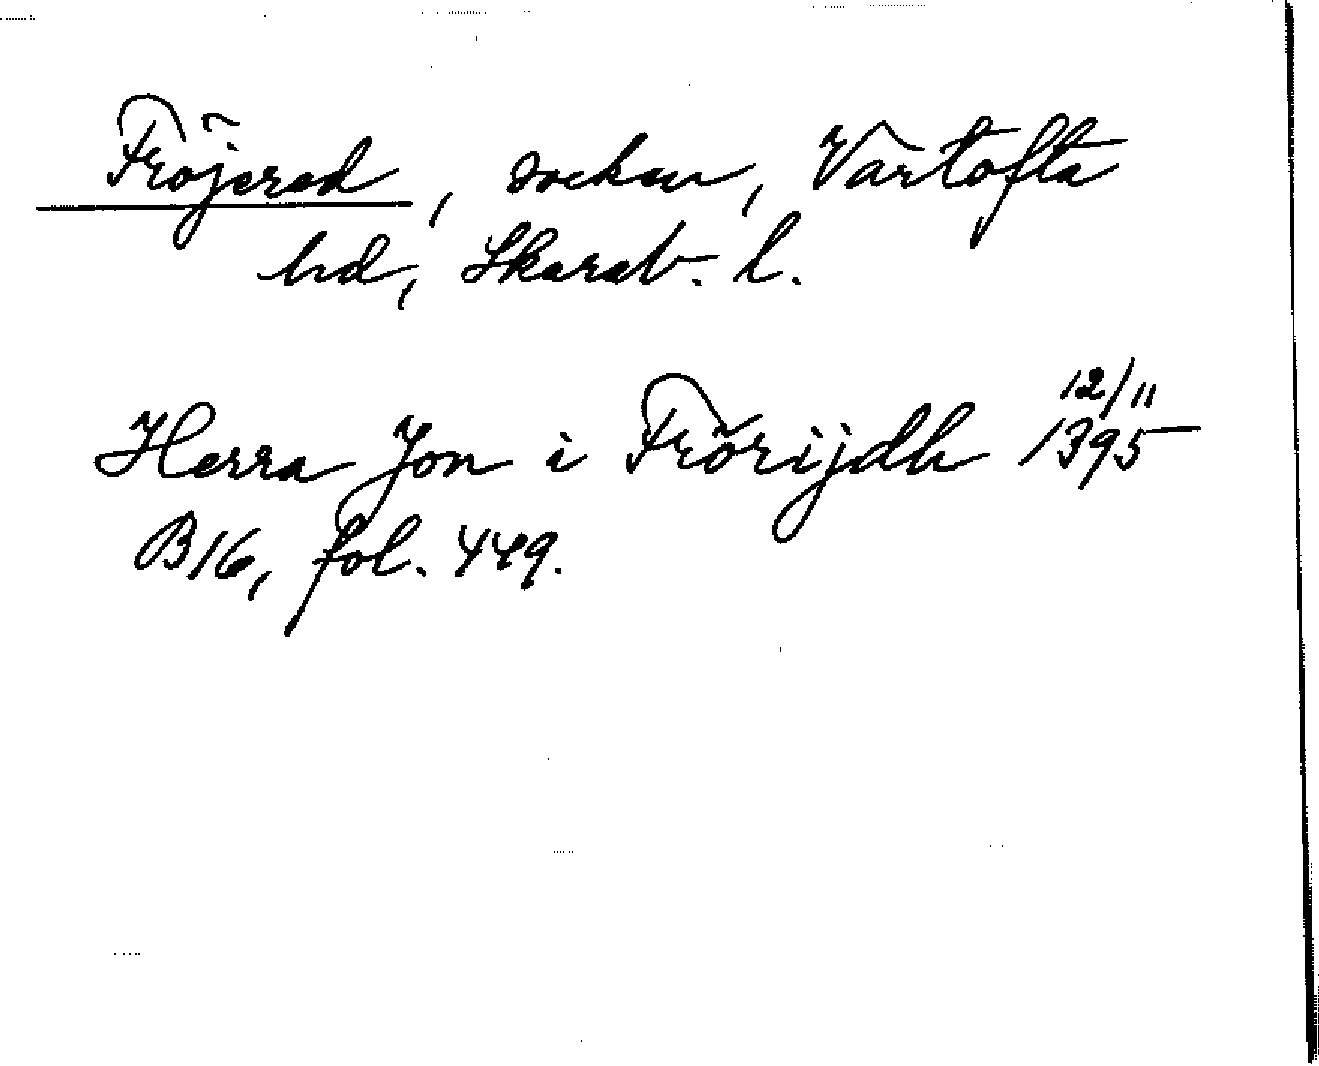 Fröjered, socken, Vartofta
hd, Skarab. l.
Herra Jon i Frörijdh 12/11 1395
B16, fol. 449.